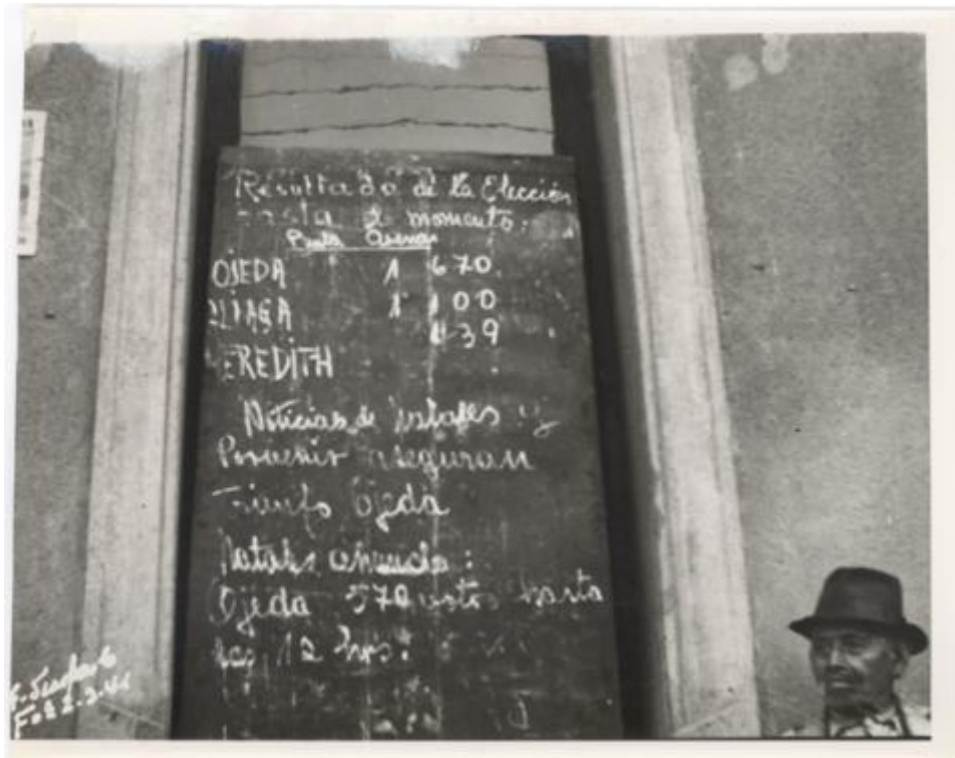 Resultado de la Elección
hasta el momento:
Punta Arenas
OJEDA 1 670
ALIAGA 1 100
MEREDITH 439
Noticias de Natales y
Porvenir aseguran
Triunfo Ojeda
Natales anuncia:
Ojeda 570 votos hasta
las 12 hrs: